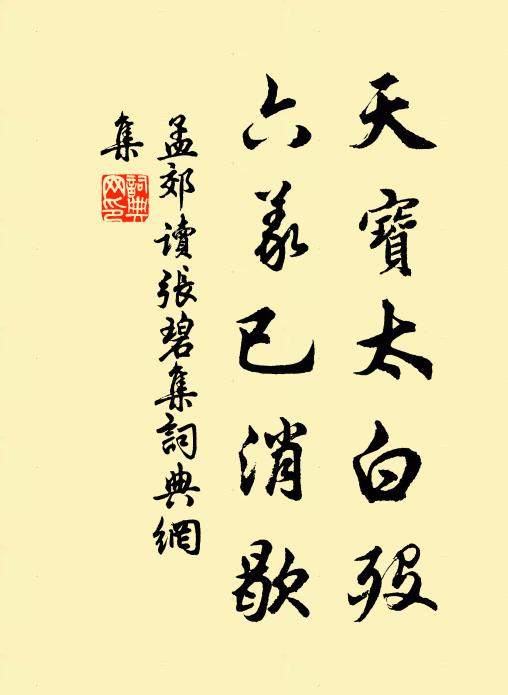 天寶太白歿
六義已消歇
孟郊讀張碧集詞典網
集
詞典
网印